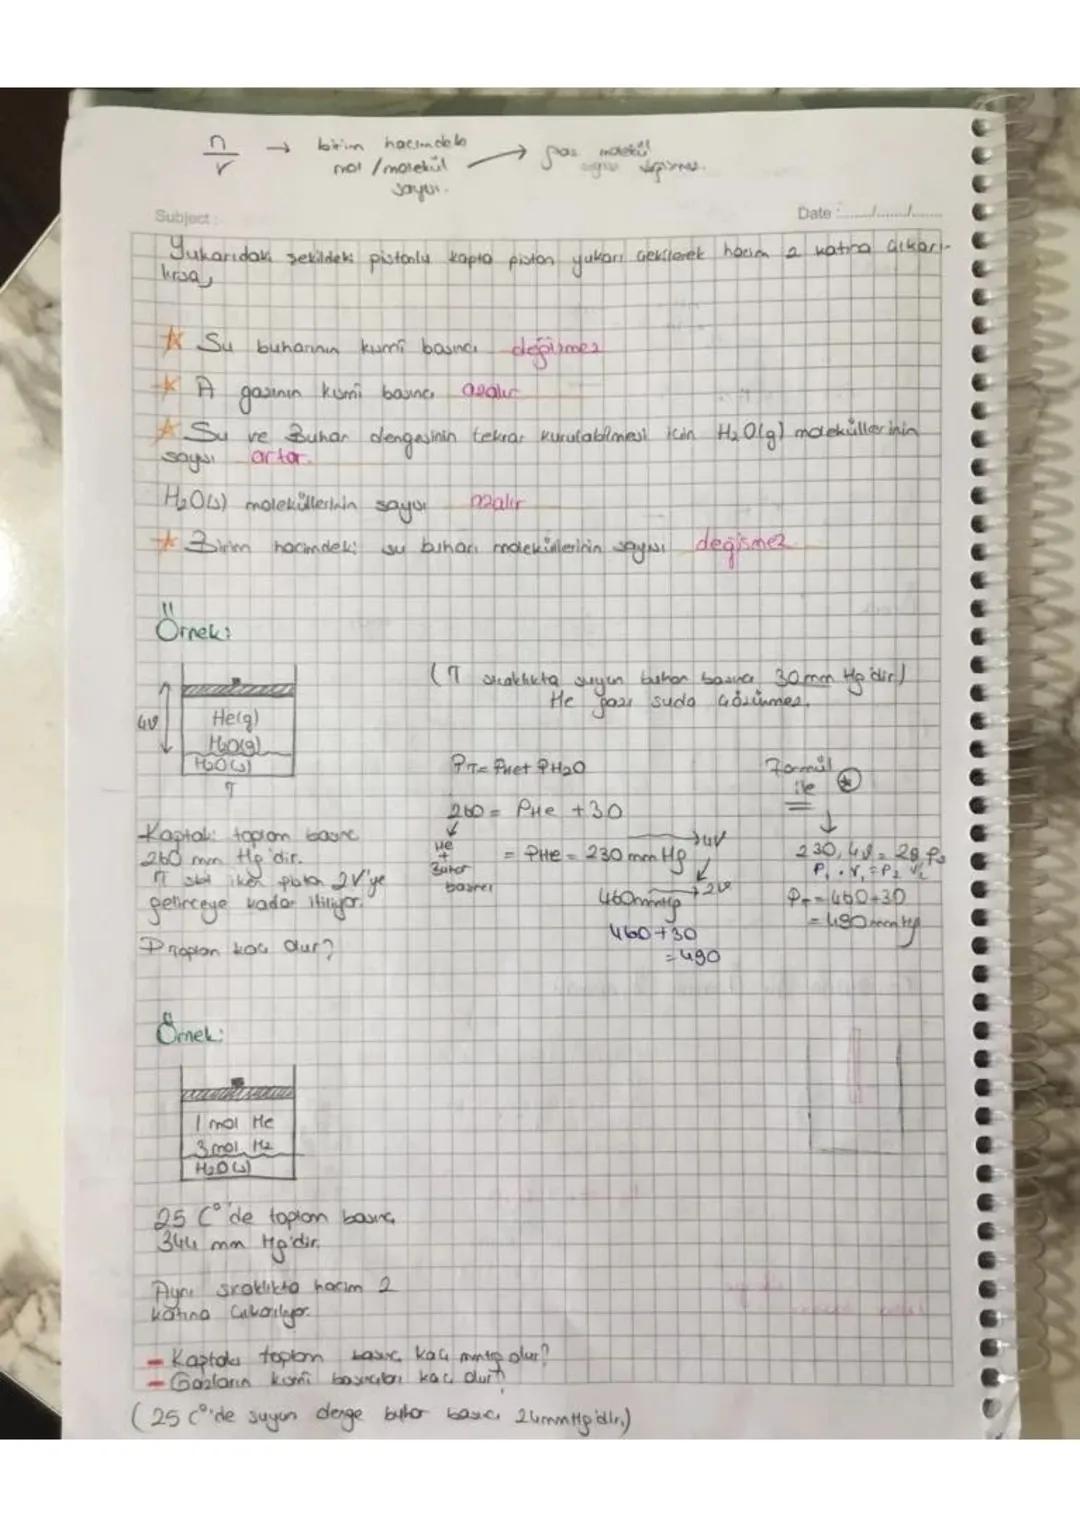 n/v → birim hacimdeki
mol / molekül → gaz molekül
sayısı. sayısı değişmez.
Subject:
Date :......./......./.......
Yukarıdaki şekildeki pistonlu kapta piston yukarı çekilerek hacim 2 katına çıkarı-
lırsa,
Su buharının kısmî basıncı değişmez
A gazının kısmî basıncı azalır
Su ve Buhar dengesinin tekrar kurulabilmesi için H₂O(g) moleküllerinin
sayısı artar.
H₂O(s) moleküllerinin sayısı azalır
Birim hacimdeki su buharı moleküllerinin sayısı değişmez
Örnek:
(T sıcaklıkta suyun buhar basıncı 30 mm Hg'dir)
He gazı suda çözünmez.
4V
He(g)
H₂O(g)
H₂O(s)
T
PT = PHe + PH₂O
260 = PHe + 30
He
+
Buhar
basıncı
= PHe = 230 mm Hg
→ 4V
460mmHg → 2V
460+30
= 490
Formül
ile
230.4V = 2V.P₂
P₁.V₁ = P₂ V₂
PT = 460+30
= 490 mm Hg
Kaptaki toplam basınç
260 mm Hg'dir.
T sbt iken piston 2V'ye
gelinceye kadar itiliyor.
P toplam kaç olur?
Örnek:
1 mol He
3 mol H₂
H₂O(s)
25 C°'de toplam basınç
344 mm Hg'dir.
Aynı sıcaklıkta hacim 2
katına çıkarılıyor.
- Kaptaki toplam basınç kaç mmHg olur?
- Gazların kısmî basınçları kaç olur?
(25 C°'de suyun denge buhar basıncı 24mmHg'dir.)